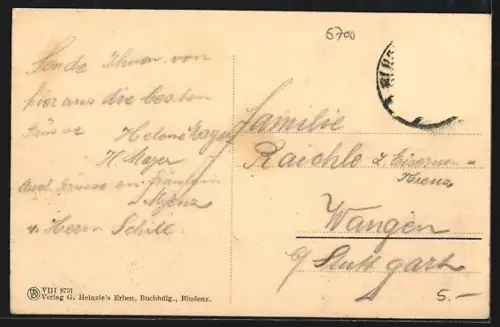 5700
Sende Ihnen von
hier aus die besten
Grüsse Helene Mayer
H. Mayer
Auch Grüsse an Fräulein
v. Herrn Schill
Familie
Raichle z. Eisernen
Kreuz
Wangen
Stuttgart
5.-
VDI 8721
Verlag G. Heinzle's Erben, Buchhdlg., Bludenz.